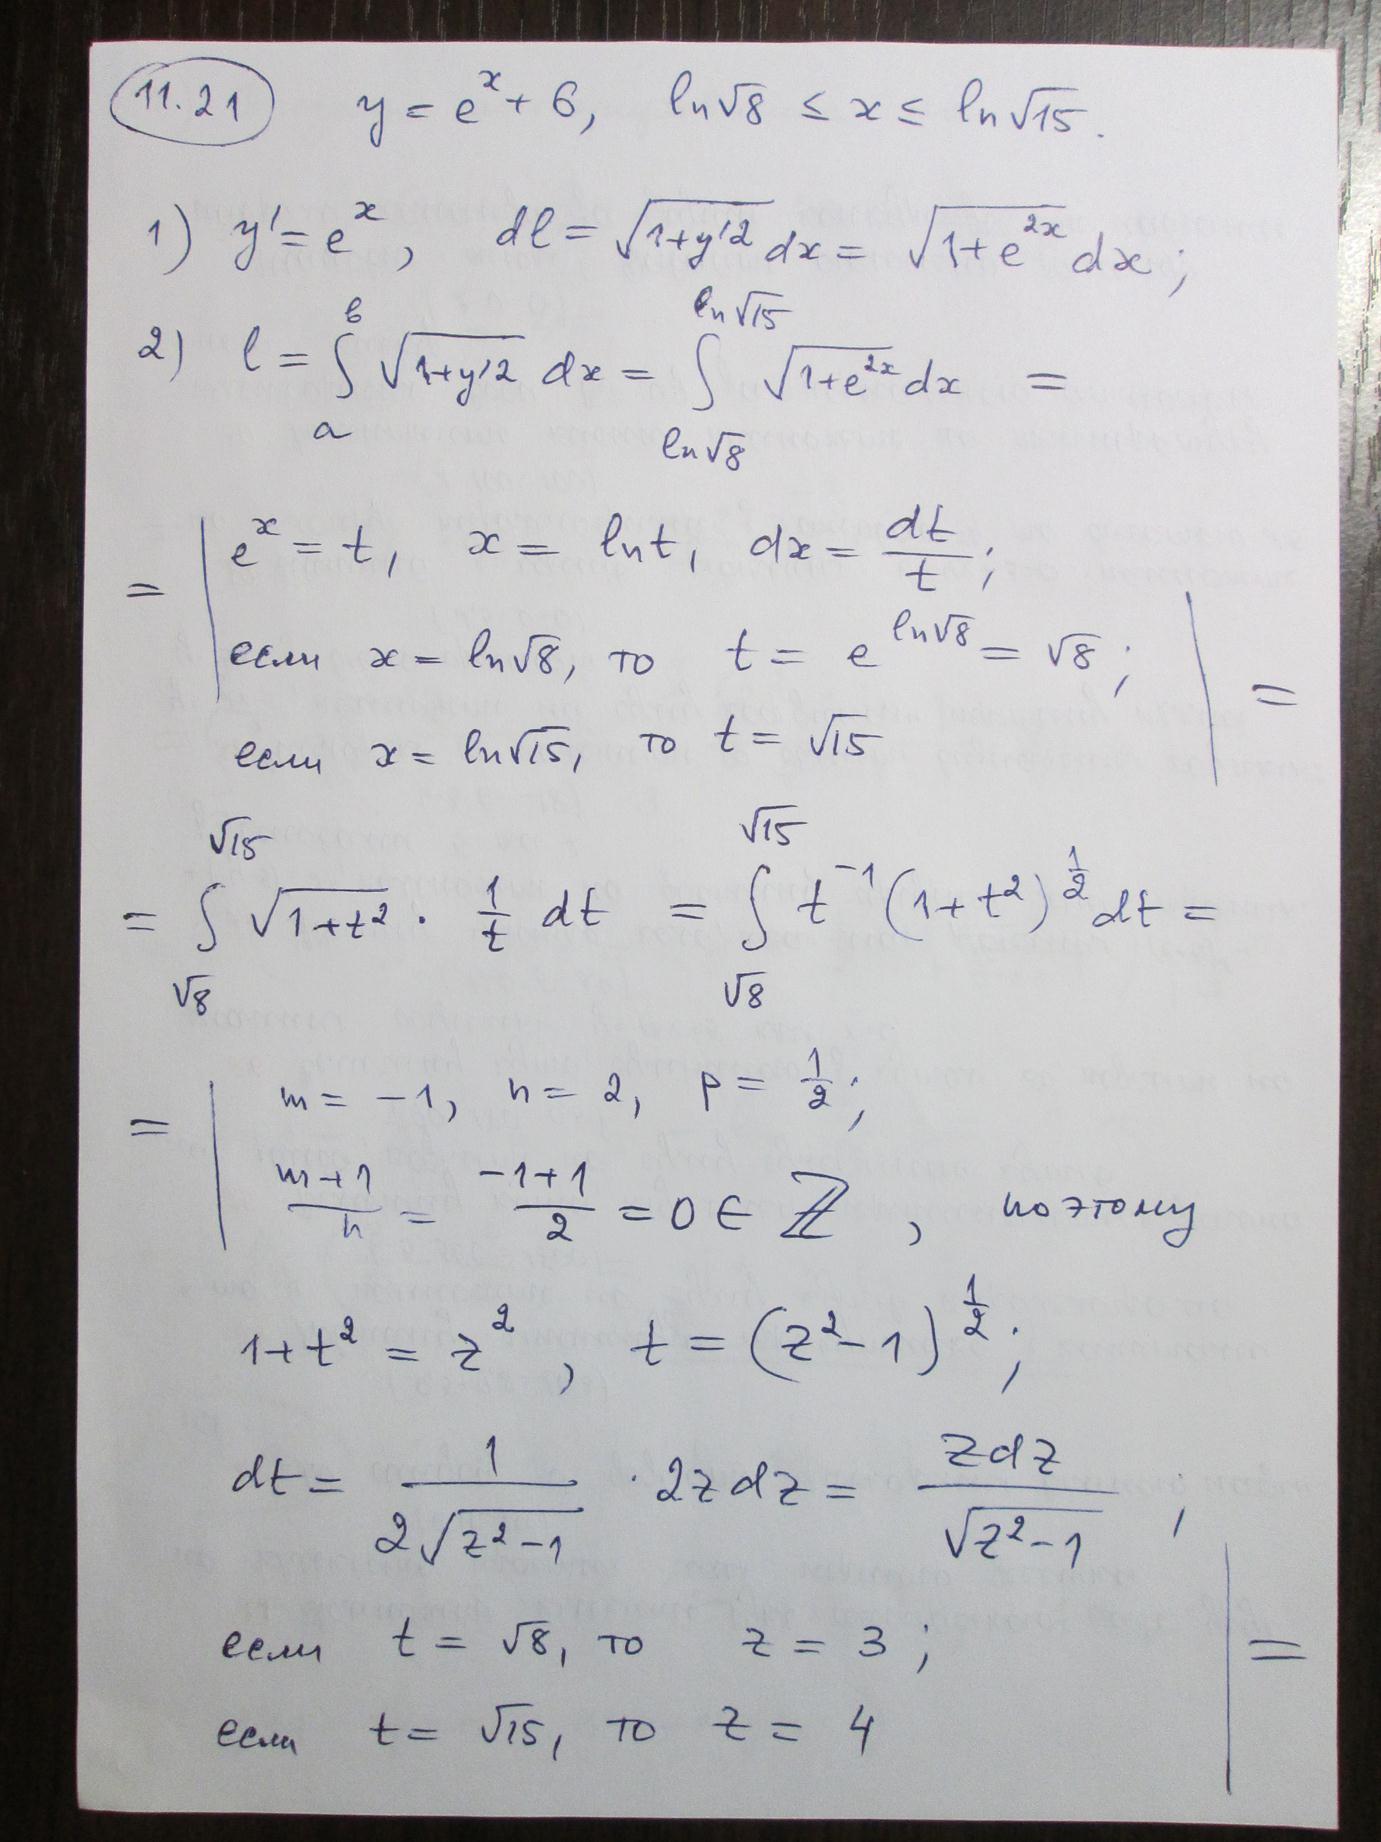 11.21 y = e^x + 6, ln√8 ≤ x ≤ ln√15.
1) y' = e^x, dl = √(1+y'^2) dx = √(1+e^(2x)) dx;
2) l = ∫_a^b √(1+y'^2) dx = ∫_(ln√8)^(ln√15) √(1+e^(2x)) dx =
= | e^x = t, x = ln t, dx = dt/t;
если x = ln√8, то t = e^(ln√8) = √8; | =
если x = ln√15, то t = √15
= ∫_(√8)^(√15) √(1+t^2) · 1/t dt = ∫_(√8)^(√15) t^(-1) (1+t^2)^(1/2) dt =
= | m = -1, n = 2, p = 1/2;
(m+1)/n = (-1+1)/2 = 0 ∈ ℤ, поэтому
1+t^2 = z^2, t = (z^2-1)^(1/2);
dt = 1/(2√(z^2-1)) · 2z dz = z dz/√(z^2-1),
если t = √8, то z = 3; | =
если t = √15, то z = 4